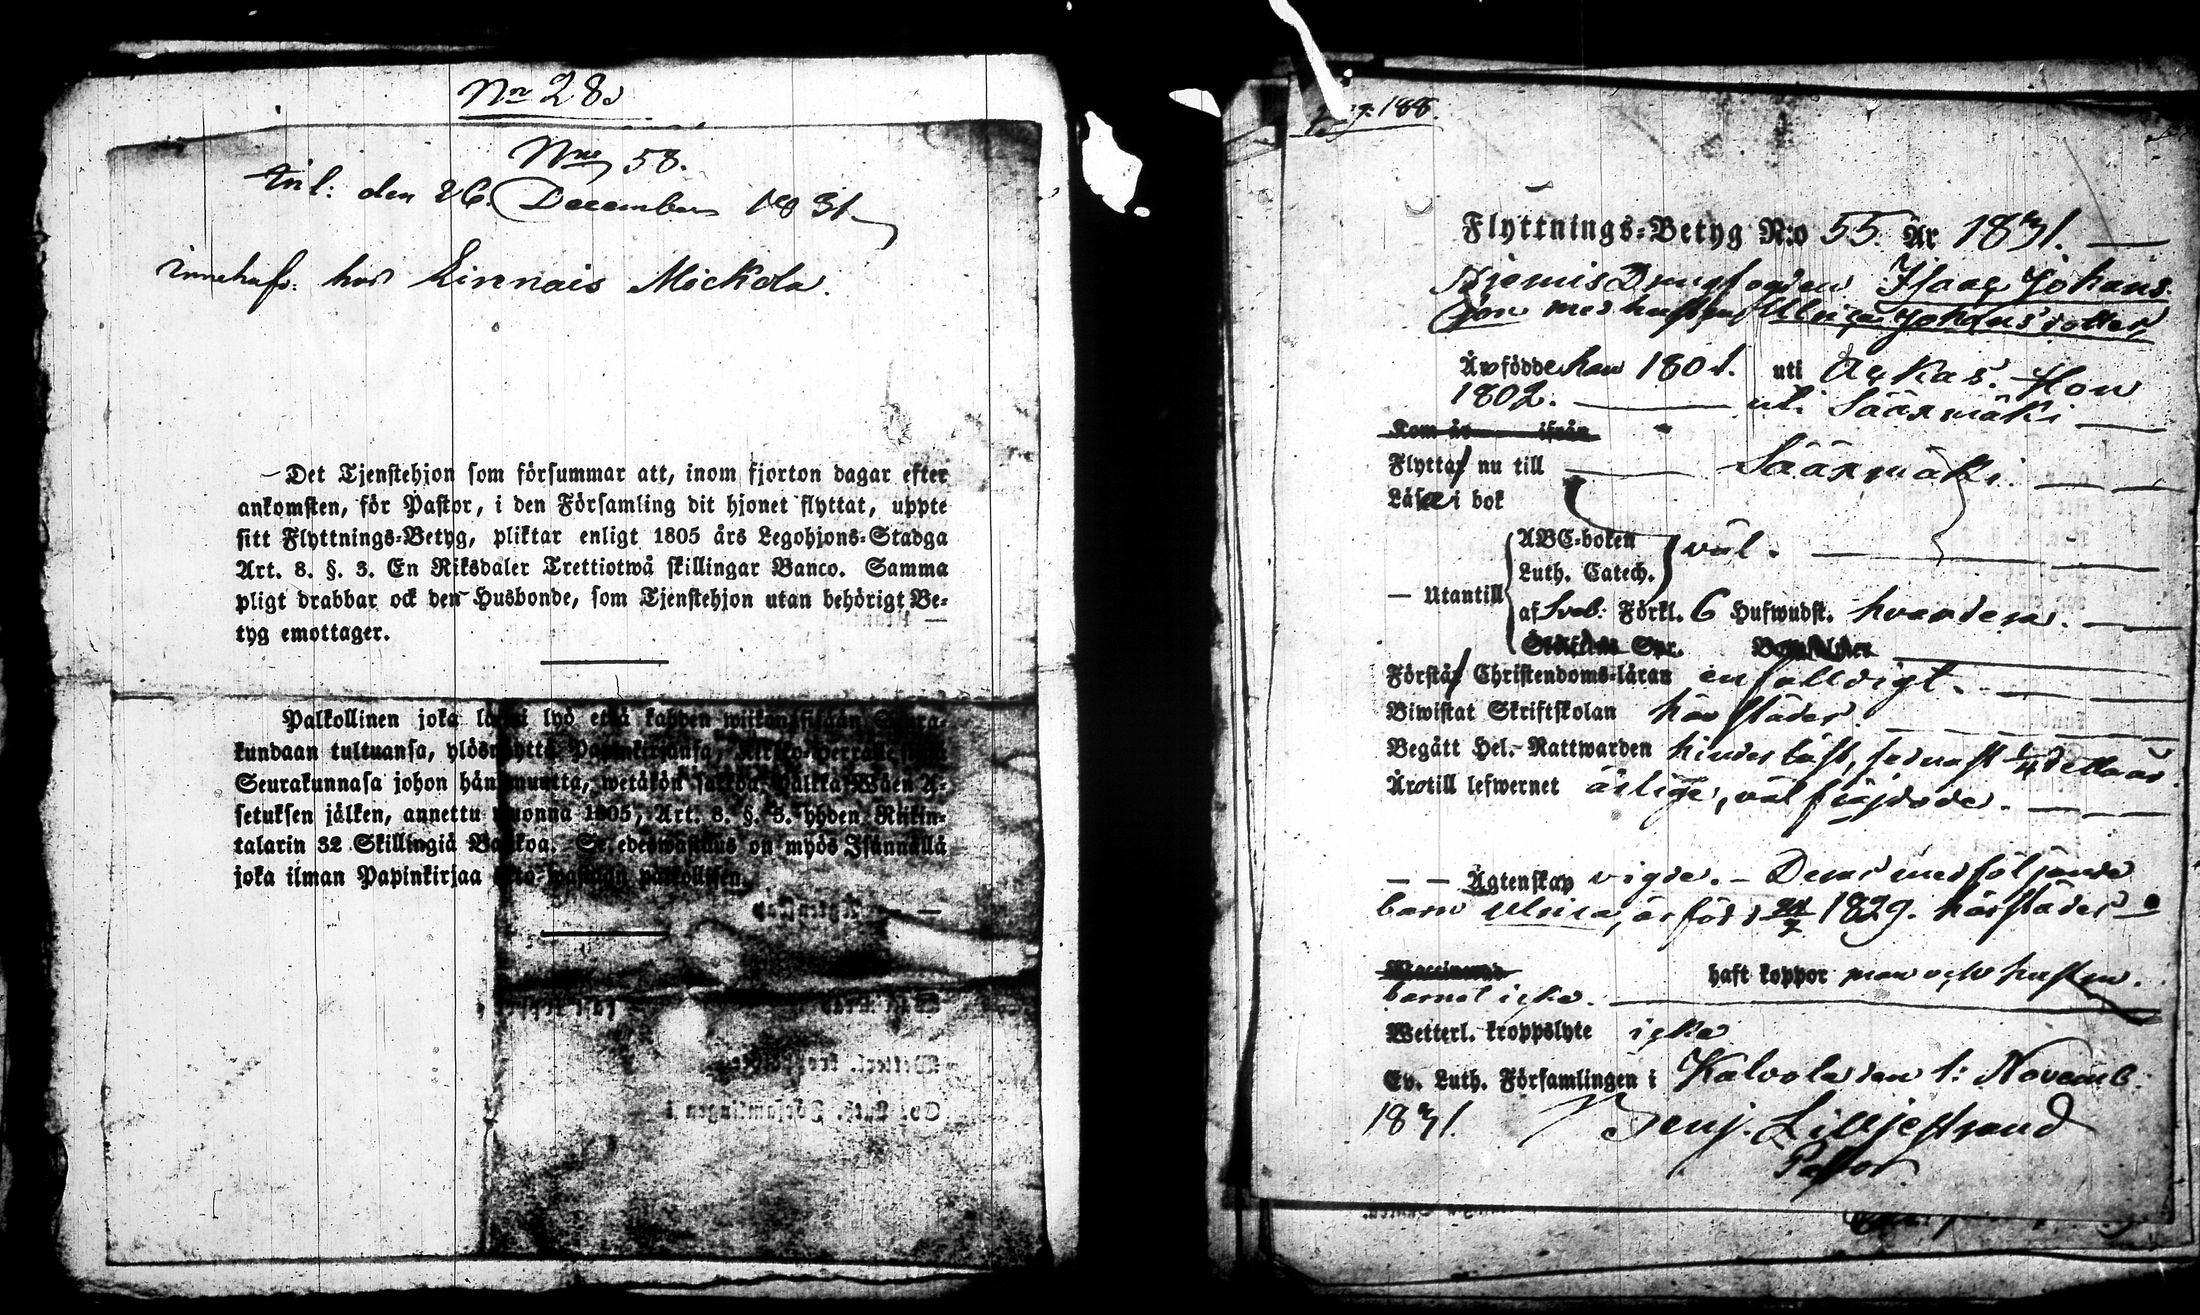 No 28.
No 58.
Inl: den 26. December 1831
innehafs: hos Linnais Mickola.
Det Tjenstehjon som försummar att, inom fjorton dagar efter
ankomsten, för Pastor, i den Församling dit hjonet flyttat, uppte
sitt Flyttnings-Betyg, pliktar enligt 1805 års Legohjons-Stadga
Art. 8. §. 3. En Riksdaler Trettiotwå skillingar Banco. Samma
pligt drabbar ock den Husbonde, som Tjenstehjon utan behörigt Be-
tyg emottager.
Palkollinen joka lyö että kahden wiikon sisään Seura-
kundaan tultuansa, Papinkirjansa, Kirkko-Herralle
Seurakunnasa johon hän muutta, wetäkön sakkoa Palkka-Wäen A-
setuksen jälken, annettu wuonna 1805, Art. 8. §. 3. yhden Riikin-
talarin 32 Skillingiä Bankoa. Se edeswastaus on myös Isännällä
joka ilman Papinkirjaa palkollisen.
pag. 188.
Flyttnings-Betyg N:o 55. År 1831.
Isaac Johans
son med hustrun Ulrica Johansdotter
Äro födde han 1801. uti Ackas. Hon
1802. uti Sääxmäki
Kom år ifrån
Flytta nu till Sääxmäki.
Läsa i bok
Utantill ABC-boken väl.
Luth. Catech.
af Sveb: Förkl. 6 Hufwudst. hvardera.
Förstå Christendoms-läran enfalldigt.
Biwistat Skriftskolan härstädes.
Begått Hel. Nattwarden
Äro till lefwernet ärlige, väl frejdade.
Ägtenskap vigde. - Deras medföljande
barn Ulrica, är född 1829. härstädes
haft koppor man och hustru.
barnet icke.
Wetterl. kroppslyte icke
Ev. Luth. Församlingen i Kalvola den 1: Novemb.
1831. Benj. Lilljestrand
Pastor.